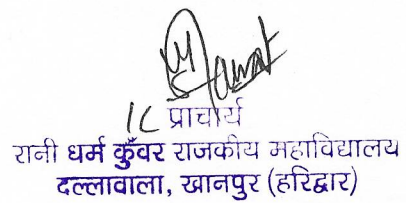 I/C प्राचार्य
रानी धर्म कुँवर राजकीय महाविद्यालय
दल्लावाला, खानपुर (हरिद्वार)